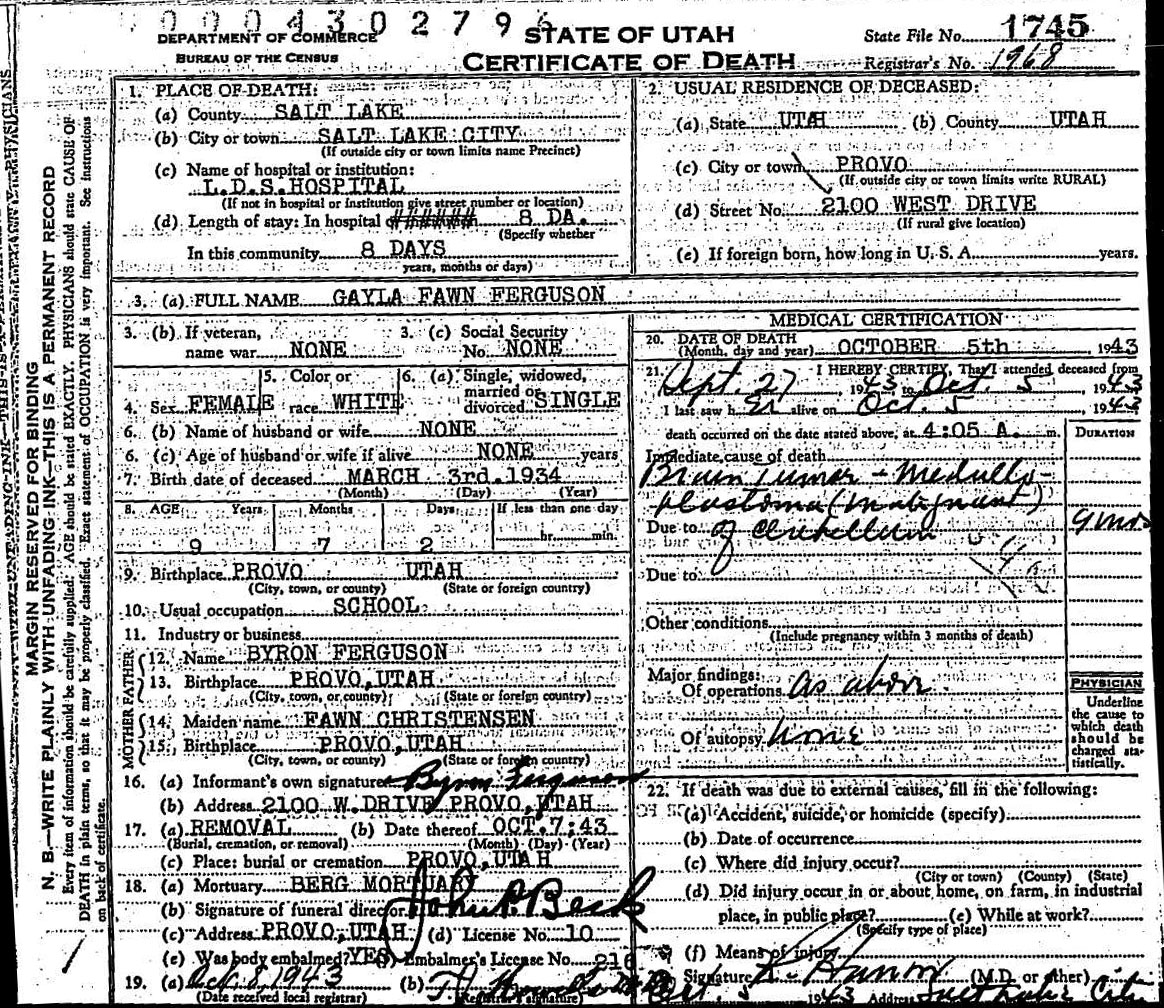 0004302796
DEPARTMENT OF COMMERCE
BUREAU OF THE CENSUS
STATE OF UTAH
CERTIFICATE OF DEATH
State File No. 1745
Registrar's No. 1968
MARGIN RESERVED FOR BINDING
N. B.—WRITE PLAINLY WITH UNFADING INK—THIS IS A PERMANENT RECORD
Every item of information should be carefully supplied. AGE should be stated EXACTLY. PHYSICIANS should state CAUSE OF
DEATH in plain terms, so that it may be properly classified. Exact statement of OCCUPATION is very important. See instructions
on back of certificate.
1. PLACE OF DEATH:
(a) County SALT LAKE
(b) City or town SALT LAKE CITY
(If outside city or town limits name Precinct)
(c) Name of hospital or institution:
L.D.S.HOSPITAL
(If not in hospital or institution give street number or location)
(d) Length of stay: In hospital 8 DA.
(Specify whether
In this community 8 DAYS
years, months or days)
2. USUAL RESIDENCE OF DECEASED:
(a) State UTAH (b) County UTAH
(c) City or town PROVO
(If outside city or town limits write RURAL)
(d) Street No. 2100 WEST DRIVE
(If rural give location)
(e) If foreign born, how long in U. S. A. years.
3. (a) FULL NAME GAYLA FAWN FERGUSON
3. (b) If veteran,
name war NONE
3. (c) Social Security
No. NONE
4. Sex FEMALE
5. Color or
race WHITE
6. (a) Single, widowed,
married or
divorced SINGLE
6. (b) Name of husband or wife NONE
6. (c) Age of husband or wife if alive NONE years
7. Birth date of deceased MARCH 3rd.1934
(Month) (Day) (Year)
8. AGE Years Months Days If less than one day
9 7 2 hr. min.
9. Birthplace PROVO UTAH
(City, town, or county) (State or foreign country)
10. Usual occupation SCHOOL
11. Industry or business
FATHER
12. Name BYRON FERGUSON
13. Birthplace PROVO,UTAH
(City, town, or county) (State or foreign country)
MOTHER
14. Maiden name FAWN CHRISTENSEN
15. Birthplace PROVO,UTAH
(City, town, or county) (State or foreign country)
16. (a) Informant's own signature Byron Ferguson
(b) Address 2100 W.DRIVE PROVO,UTAH
17. (a) REMOVAL (b) Date thereof OCT.7;43
(Burial, cremation, or removal) (Month) (Day) (Year)
(c) Place: burial or cremation PROVO,UTAH
18. (a) Mortuary BERG MORTUARY
(b) Signature of funeral director John A Beck
(c) Address PROVO,UTAH (d) License No. 10
(e) Was body embalmed? YES Embalmer's License No. 216
19. (a) Oct. 8, 1943 (b)
(Date received local registrar) (Registrar's signature)
MEDICAL CERTIFICATION
20. DATE OF DEATH
(Month, day and year) OCTOBER 5th , 1943
21. I HEREBY CERTIFY, That I attended deceased from
Sept. 27 1943 to Oct 5 1943
I last saw h er alive on Oct. 5 , 1943
death occurred on the date stated above, at 4:05 A. m.
DURATION
Immediate cause of death
Brain Tumor - Medullo-
blastoma (malignant)
Due to of Cerebellum 9 mos
Due to
Other conditions
(Include pregnancy within 3 months of death)
Major findings:
Of operations As above
Of autopsy none
PHYSICIAN
Underline
the cause to
which death
should be
charged sta-
tistically.
22. If death was due to external causes, fill in the following:
(a) Accident, suicide, or homicide (specify)
(b) Date of occurrence
(c) Where did injury occur?
(City or town) (County) (State)
(d) Did injury occur in or about home, on farm, in industrial
place, in public place? (e) While at work?
(Specify type of place)
(f) Means of injury
Signature (M.D. or other)
Oct 5 1943 Address Salt Lake City